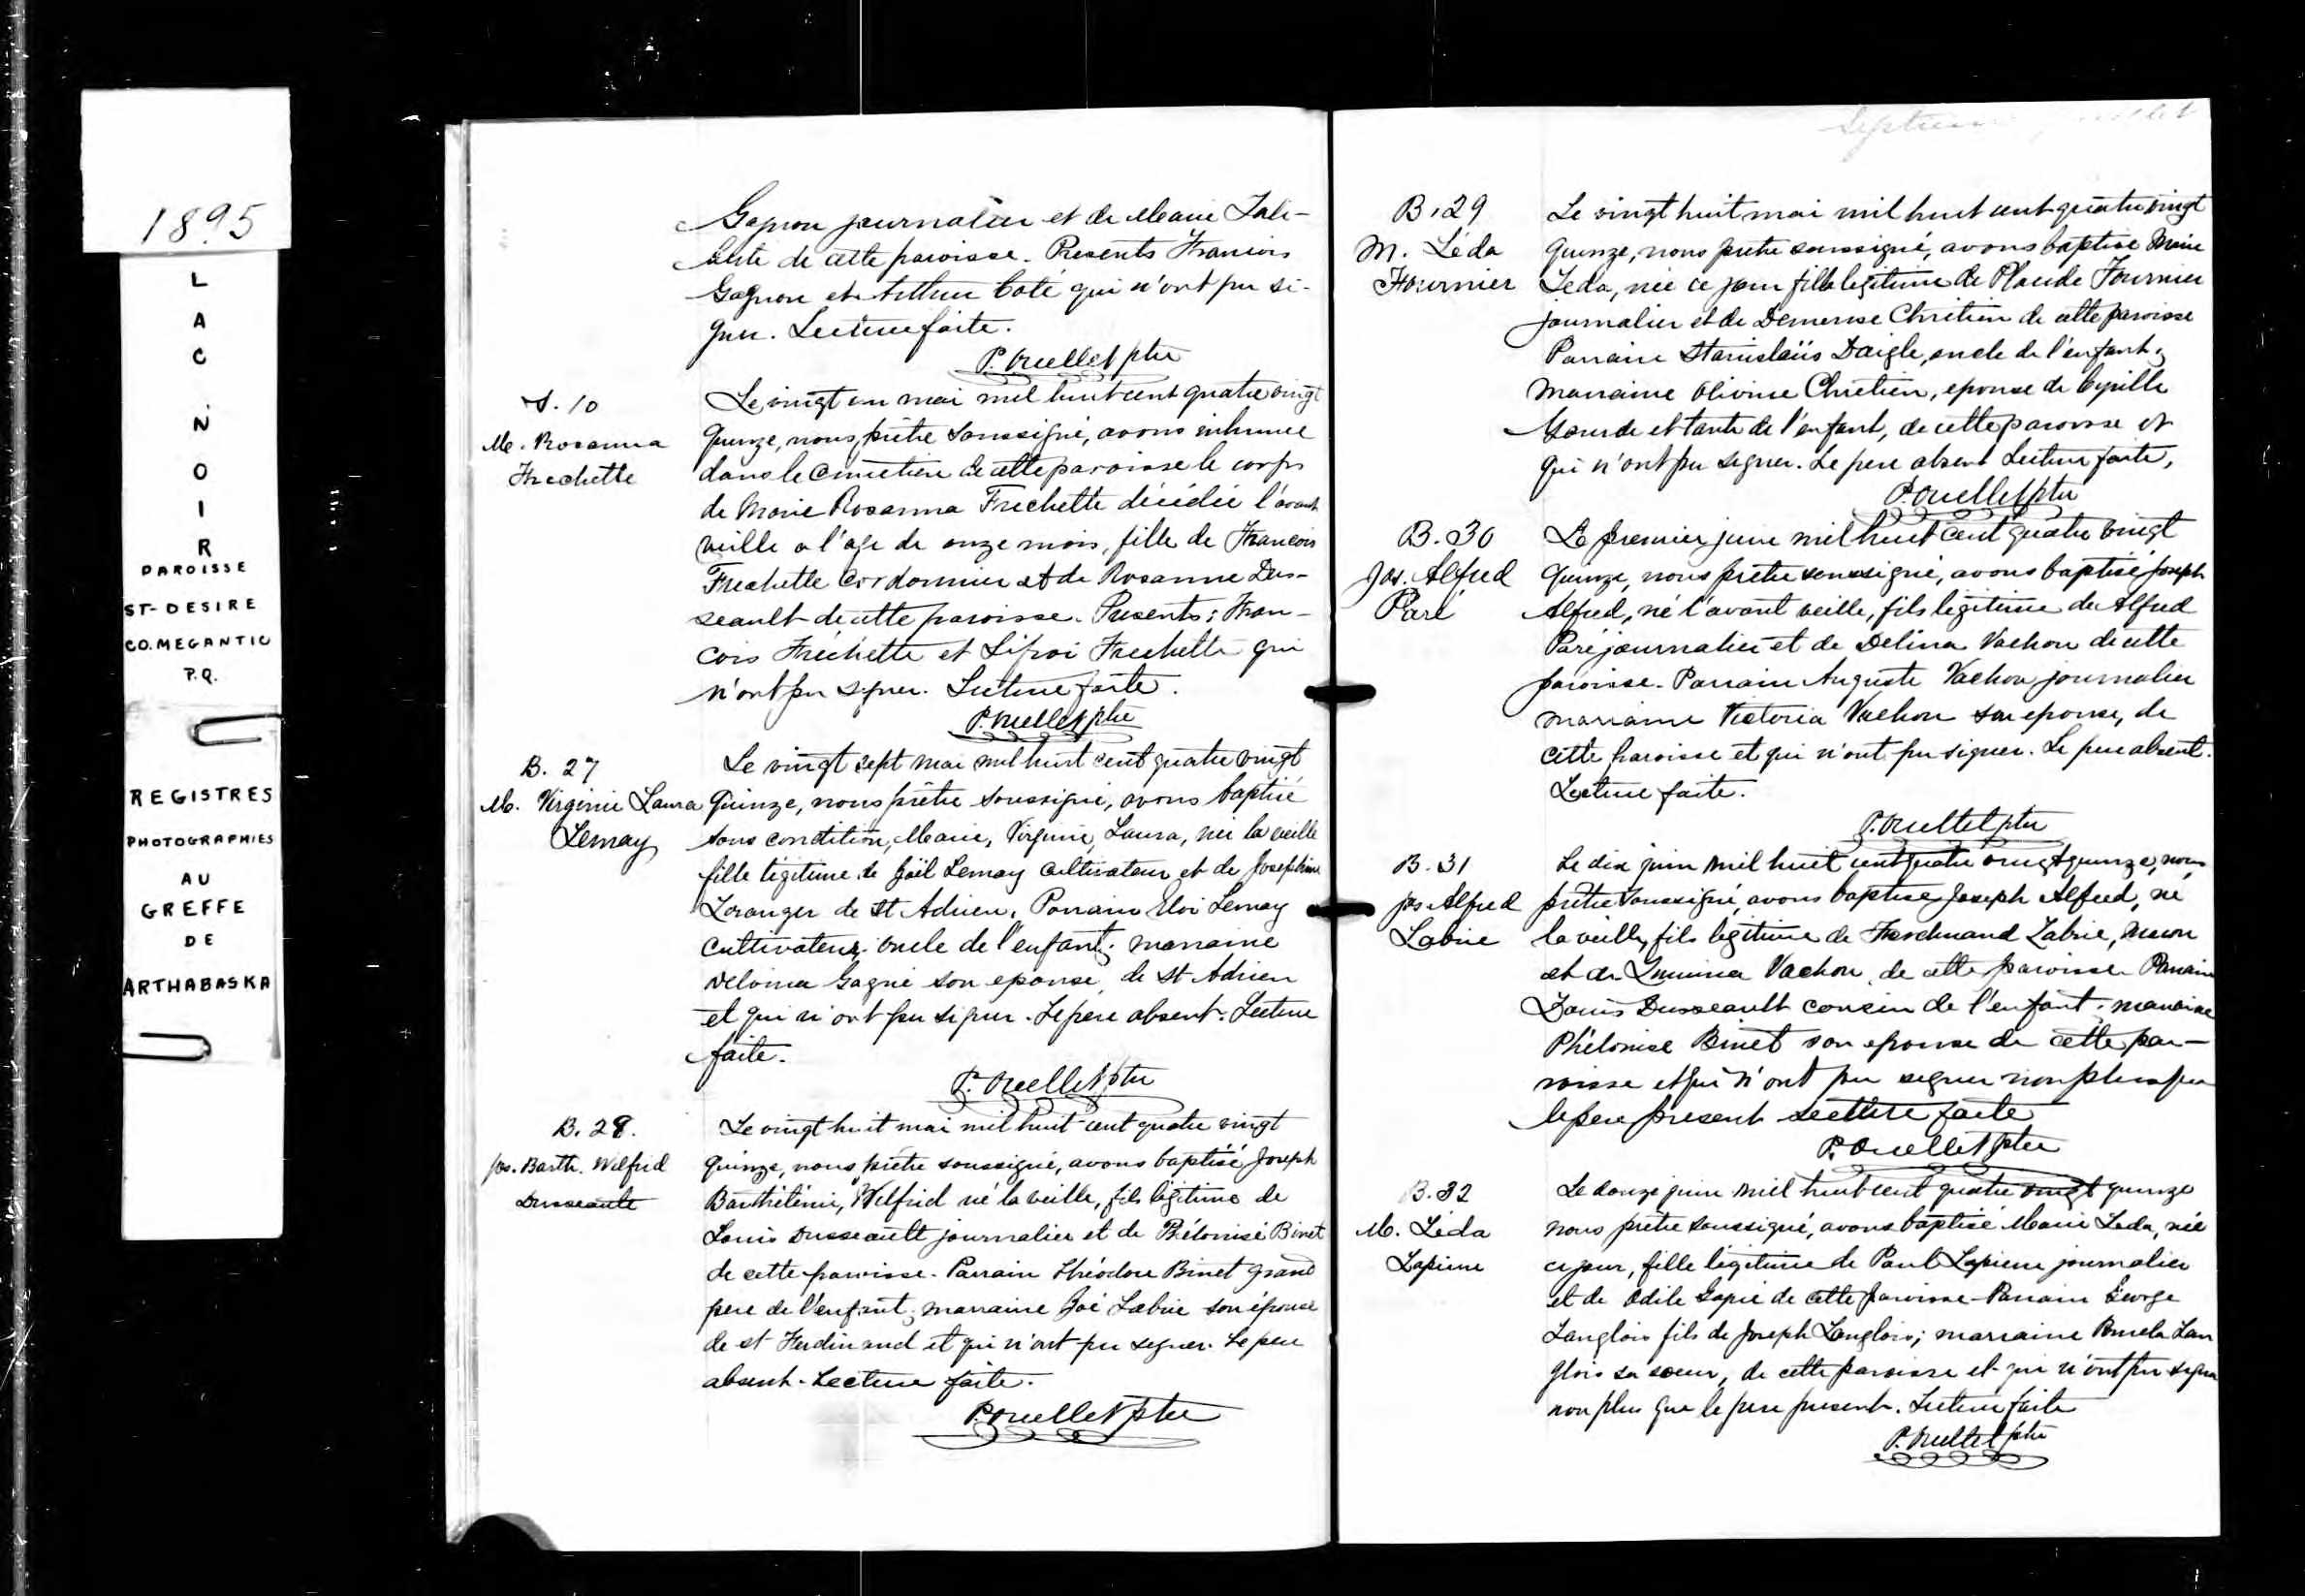 1895
L
A
C
N
O
I
R
PAROISSE
ST-DESIRE
CO. MEGANTIC
P.Q.
REGISTRES
PHOTOGRAPHIES
AU
GREFFE
DE
ARTHABASKA
Gagnon journalier et de Marie Tali-
de cette paroisse. Presents Francois
Gagnon et Arthur Coté qui n'ont pu si-
gner. Lecture faite.
P. Ouellet ptre
S. 10
M. Rosanna
Frechette
Le vingt un mai mil huit cent quatre vingt
quinze, nous, prêtre soussigné, avons inhumé
dans le cimetière de cette paroisse le corps
de Marie Rosanna Frechette décédée l'avant
veille a l'age de onze mois, fille de Francois
Frechette Cordonnier et de Rosanne Dus-
seault de cette paroisse. Presents: Fran-
cois Fréchette et Frechette qui
n'ont pu signer. Lecture faite.
P. Ouellet ptre
B. 27
M. Virginie Laura
Lemay
Le vingt sept mai mil huit cent quatre vingt
quinze, nous prêtre soussigné, avons baptisé
sous condition, Marie, Virginie, Laura, née la veille
fille légitime de Joël Lemay cultivateur et de Josephine
Loranger de St Adrien. Parrain Eloi Lemay
cultivateur, oncle de l'enfant; marraine
Gagné son epouse, de St Adrien
et qui n'ont pu signer. Le pere absent. Lecture
faite.
P. Ouellet ptre
B. 28.
Jos. Barth. Wilfrid
Dusseault
Le vingt huit mai mil huit cent quatre vingt
quinze, nous prêtre soussigné, avons baptisé Joseph
Barthélémi, Wilfrid né la veille, fils légitime de
Louis Dusseault journalier et de Phélonise Binet
de cette paroisse. Parrain Théodore Binet grand
pere de l'enfant; marraine Zoé Labrie son épouse
de St Ferdinand et qui n'ont pu signer. Le pere
absent. Lecture faite.
P. Ouellet ptre
B. 29
M. Léda
Fournier
Le vingt huit mai mil huit cent quatre vingt
quinze, nous prêtre soussigné, avons baptisé Marie
Leda, née ce jour fille legitime de Plaude Fournier
journalier et de Demerise Chrétien de cette paroisse
Parrain Stanislaüs Daigle, oncle de l'enfant;
Marraine Olivine Chrétien, epouse de Cyrille
Gourde et tante de l'enfant, de cette paroisse et
qui n'ont pu signer. Le pere absent Lecture faite,
P. Ouellet ptre
B. 30
Jos. Alfred
Paré
Le premier juin mil huit cent quatre vingt
quinze, nous prêtre soussigné, avons baptisé Joseph
Alfred, né l'avant veille, fils légitime de Alfred
Paré journalier et de Delina Vachon de cette
paroisse. Parrain Auguste Vachon journalier
marraine Victoria Vachon son epouse, de
cette paroisse et qui n'ont pu signer. Le pere absent.
Lecture faite.
P. Ouellet ptre
B. 31
Jos Alfred
Labrie
Le dix juin mil huit cent quatre vingt quinze, nous
prêtre soussigné, avons baptisé Joseph Alfred, né
la veille, fils légitime de Ferdinand Labrie,
et de Vachon, de cette paroisse. Parrain
Louis Dusseault cousin de l'enfant; marraine
Phélonise Binet son epouse de cette pa-
roisse et qui n'ont pu signer non plus que
le pere present. Lecture faite
P. Ouellet ptre
B. 32
M. Léda
Lapierre
Le douze juin mil huit cent quatre vingt quinze
nous prêtre soussigné, avons baptisé Marie Leda, née
ce jour, fille légitime de Paul Lapierre journalier
et de Odile de cette paroisse. Parrain George
Langlois fils de Joseph Langlois; marraine Lan
glois sa soeur, de cette paroisse et qui n'ont pu signer
non plus que le pere present. Lecture faite
P. Ouellet ptre